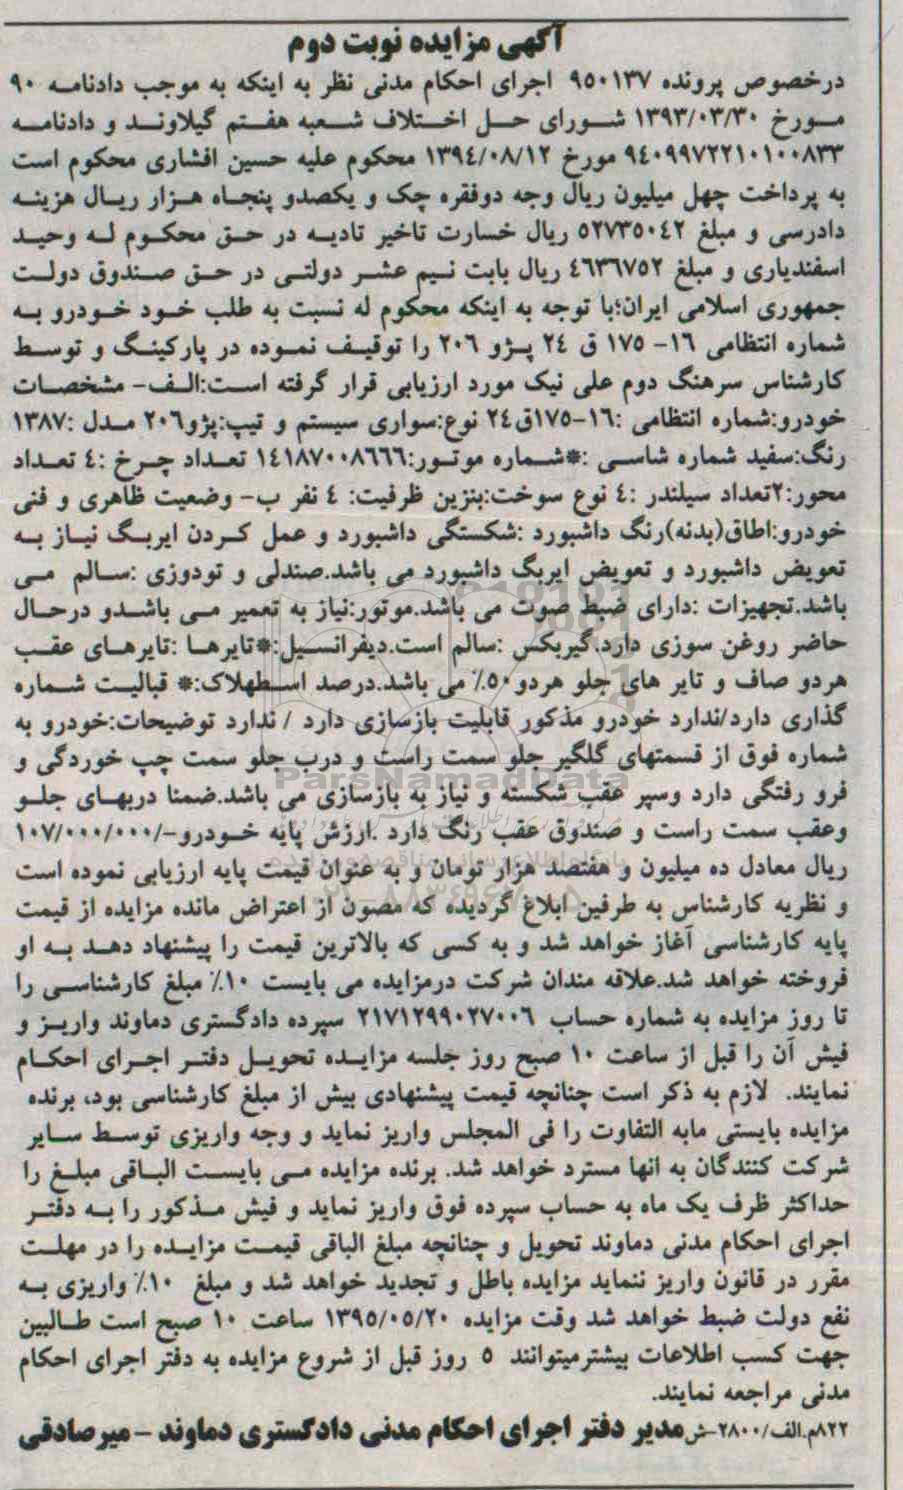 آگهی مزایده نوبت دوم
درخصوص پرونده ۹۵۰۱۳۷ اجرای احکام مدنی نظر به اینکه به موجب دادنامه ۹۰
مورخ ۱۳۹۳/۰۳/۳۰ شورای حل اختلاف شعبه هفتم گیلاوند و دادنامه
۹۴۰۹۹۷۲۲۱۰۱۰۰۸۳۳ مورخ ۱۳۹۴/۰۸/۱۲ محکوم علیه حسین افشاری محکوم است
به پرداخت چهل میلیون ریال وجه دوفقره چک و یکصدو پنجاه هزار ریال هزینه
دادرسی و مبلغ ۵۲۷۳۵۰۴۲ ریال خسارت تاخیر تادیه در حق محکوم له وحید
اسفندیاری و مبلغ ۴۶۳۶۷۵۲ ریال بابت نیم عشر دولتی در حق صندوق دولت
جمهوری اسلامی ایران؛با توجه به اینکه محکوم له نسبت به طلب خود خودرو به
شماره انتظامی ۱۶- ۱۷۵ ق ۲۴ پژو ۲۰۶ را توقیف نموده در پارکینگ و توسط
کارشناس سرهنگ دوم علی نیک مورد ارزیابی قرار گرفته است:الف- مشخصات
خودرو:شماره انتظامی :۱۶-۱۷۵ق۲۴ نوع:سواری سیستم و تیپ:پژو۲۰۶ مدل :۱۳۸۷
رنگ:سفید شماره شاسی :*شماره موتور:۱۴۱۸۷۰۰۸۶۶۶ تعداد چرخ :۴ تعداد
محور:۲تعداد سیلندر :۴ نوع سوخت:بنزین ظرفیت: ۴ نفر ب- وضعیت ظاهری و فنی
خودرو:اطاق(بدنه)رنگ داشبورد :شکستگی داشبورد و عمل کردن ایربگ نیاز به
تعویض داشبورد و تعویض ایربگ داشبورد می باشد.صندلی و تودوزی :سالم می
باشد.تجهیزات :دارای ضبط صوت می باشد.موتور:نیاز به تعمیر می باشدو درحال
حاضر روغن سوزی دارد.گیربکس :سالم است.دیفرانسیل:*تایرها :تایرهای عقب
هردو صاف و تایر های جلو هردو۵۰٪ می باشد.درصد اسطهلاک:* قبالیت شماره
گذاری دارد/ندارد خودرو مذکور قابلیت بازسازی دارد / ندارد توضیحات:خودرو به
شماره فوق از قسمتهای گلگیر جلو سمت راست و درب جلو سمت چپ خوردگی و
فرو رفتگی دارد وسپر عقب شکسته و نیاز به بازسازی می باشد.ضمنا دربهای جلو
وعقب سمت راست و صندوق عقب رنگ دارد .ارزش پایه خودرو-/۱۰۷/۰۰۰/۰۰۰
ریال معادل ده میلیون و هفتصد هزار تومان و به عنوان قیمت پایه ارزیابی نموده است
و نظریه کارشناس به طرفین ابلاغ گردیده که مصون از اعتراض مانده مزایده از قیمت
پایه کارشناسی آغاز خواهد شد و به کسی که بالاترین قیمت را پیشنهاد دهد به او
فروخته خواهد شد.علاقه مندان شرکت درمزایده می بایست ۱۰٪ مبلغ کارشناسی را
تا روز مزایده به شماره حساب ۲۱۷۱۲۹۹۰۲۷۰۰۶ سپرده دادگستری دماوند واریز و
فیش آن را قبل از ساعت ۱۰ صبح روز جلسه مزایده تحویل دفتر اجرای احکام
نمایند. لازم به ذکر است چنانچه قیمت پیشنهادی بیش از مبلغ کارشناسی بود، برنده
مزایده بایستی مابه التفاوت را فی المجلس واریز نماید و وجه واریزی توسط سایر
شرکت کنندگان به انها مسترد خواهد شد. برنده مزایده می بایست الباقی مبلغ را
حداکثر ظرف یک ماه به حساب سپرده فوق واریز نماید و فیش مذکور را به دفتر
اجرای احکام مدنی دماوند تحویل و چنانچه مبلغ الباقی قیمت مزایده را در مهلت
مقرر در قانون واریز ننماید مزایده باطل و تجدید خواهد شد و مبلغ ۱۰٪ واریزی به
نفع دولت ضبط خواهد شد وقت مزایده ۱۳۹۵/۰۵/۲۰ ساعت ۱۰ صبح است طالبین
جهت کسب اطلاعات بیشترمیتوانند ۵ روز قبل از شروع مزایده به دفتر اجرای احکام
مدنی مراجعه نمایند.
۸۲۲م.الف/۲۸۰۰-ش مدیر دفتر اجرای احکام مدنی دادگستری دماوند - میرصادقی
ParsNamadData